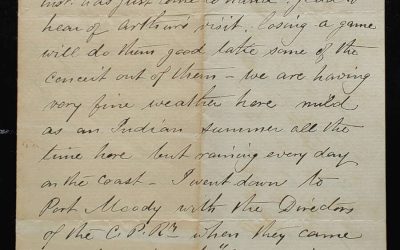 inst. was just come to hand. glad to
hear of Arthur's visit. losing a game
will do them good take some of the
conceit out of them – we are having
very fine weather here mild
as an Indian Summer all the
time here but raining every day
on the coast – I went down to
Port Moody with the Directors
of the C.P.R. when they came